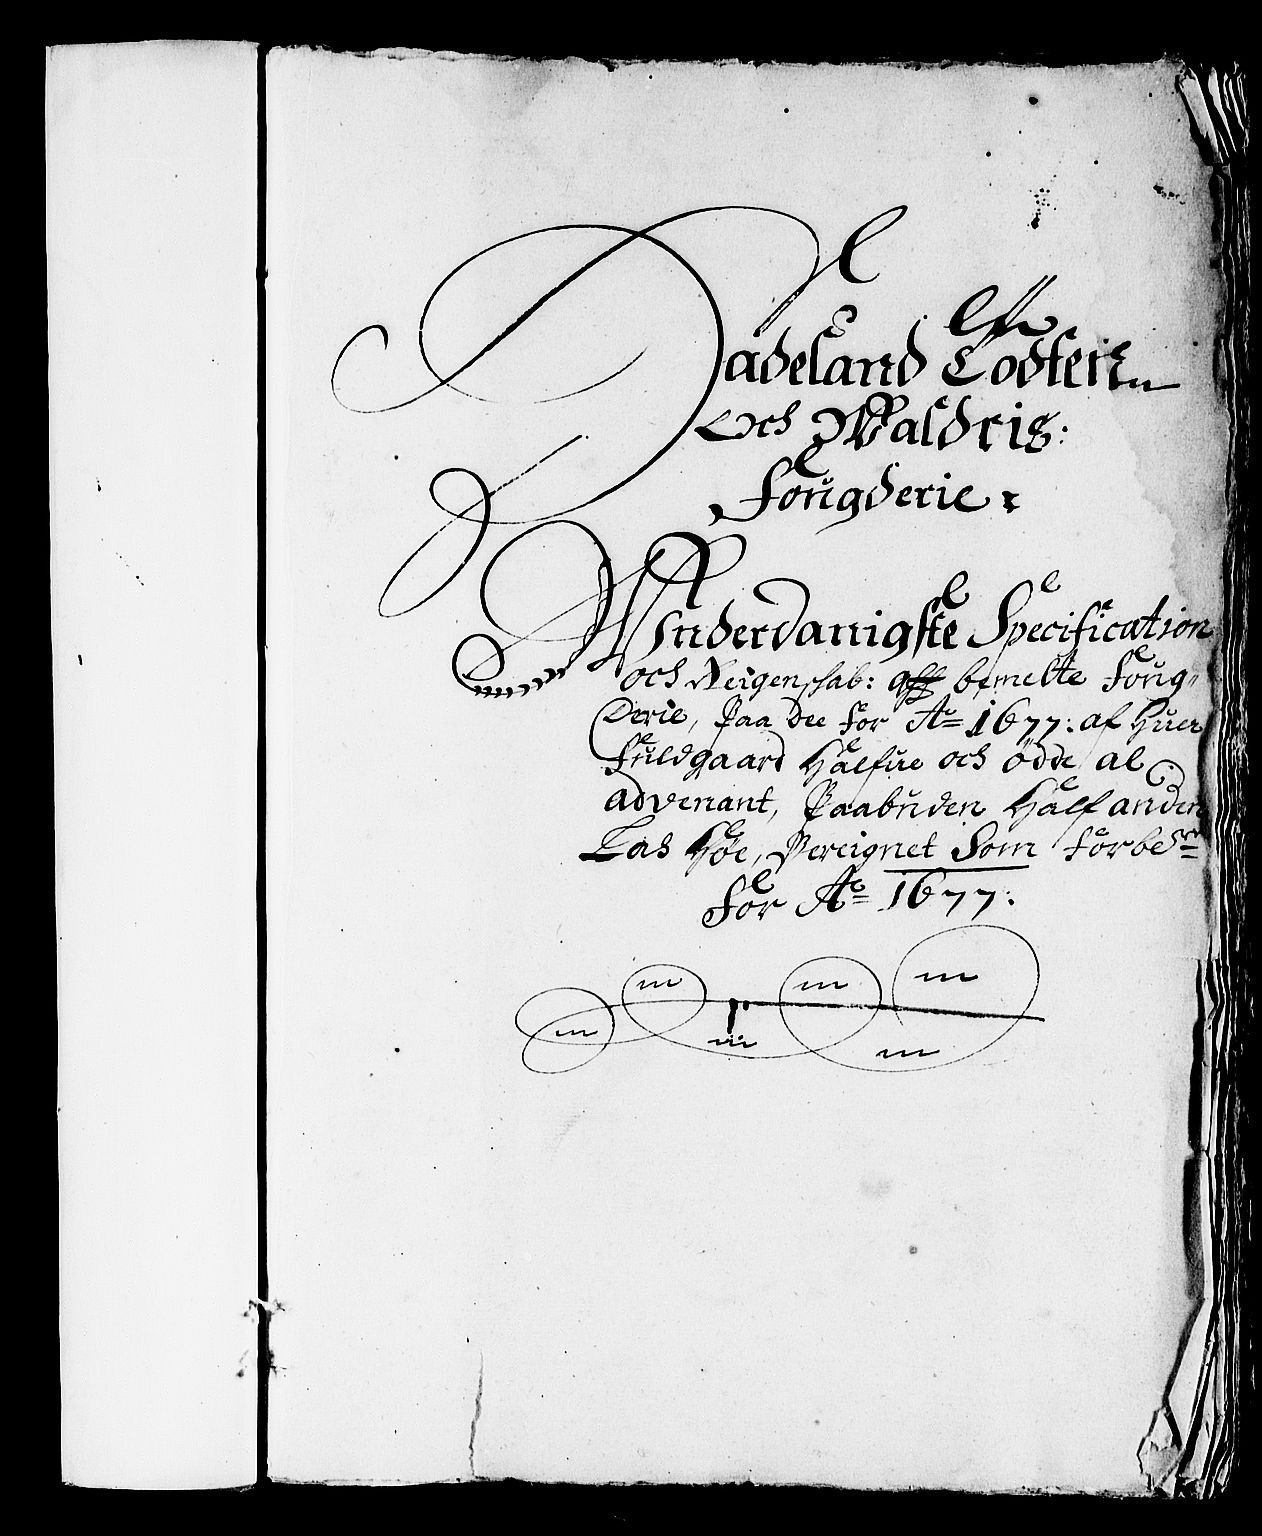 Hadeland Todten
Och Waldris:
Fougderie
Underdanigste Specification
och Reigenschab: aff bemelte Foug-
derie, Paa dee for Ao 1677: af Huer
Fuldgaard Halfue och ødde al
advenant, Paabuden Half anden
Las Høe, Bereignet Som forbem
for Ao 1677: